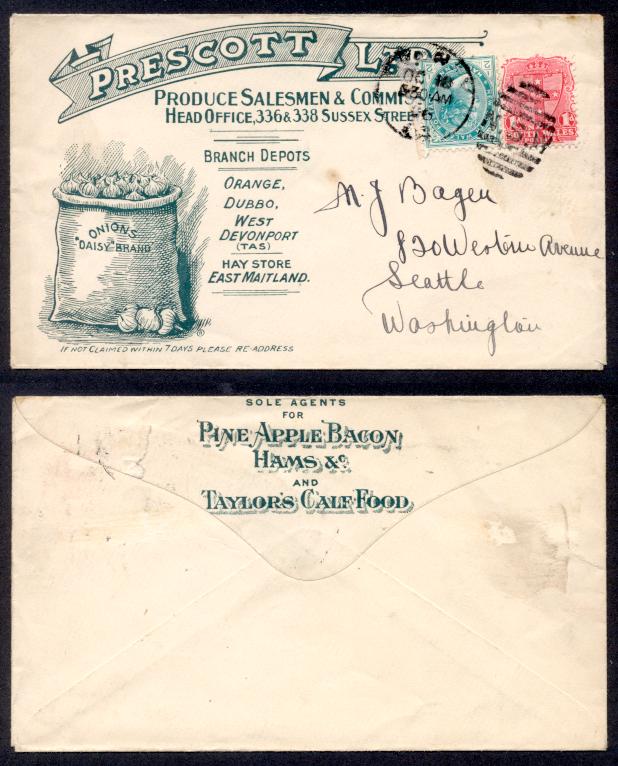 PRESCOTT LTD
PRODUCE SALESMEN & COMMIS
HEAD OFFICE, 336 & 338 SUSSEX STREE
BRANCH DEPOTS
ORANGE,
DUBBO,
WEST
DEVONPORT
(TAS)
HAY STORE
EAST MAITLAND.
ONIONS
"DAISY" BRAND
IF NOT CLAIMED WITHIN 7 DAYS PLEASE RE-ADDRESS
M J Bagen
820 Western Avenue
Seattle
Washington
1D
WALES
SOLE AGENTS
FOR
PINE APPLE BACON
HAMS &C
AND
TAYLOR'S CALF FOOD